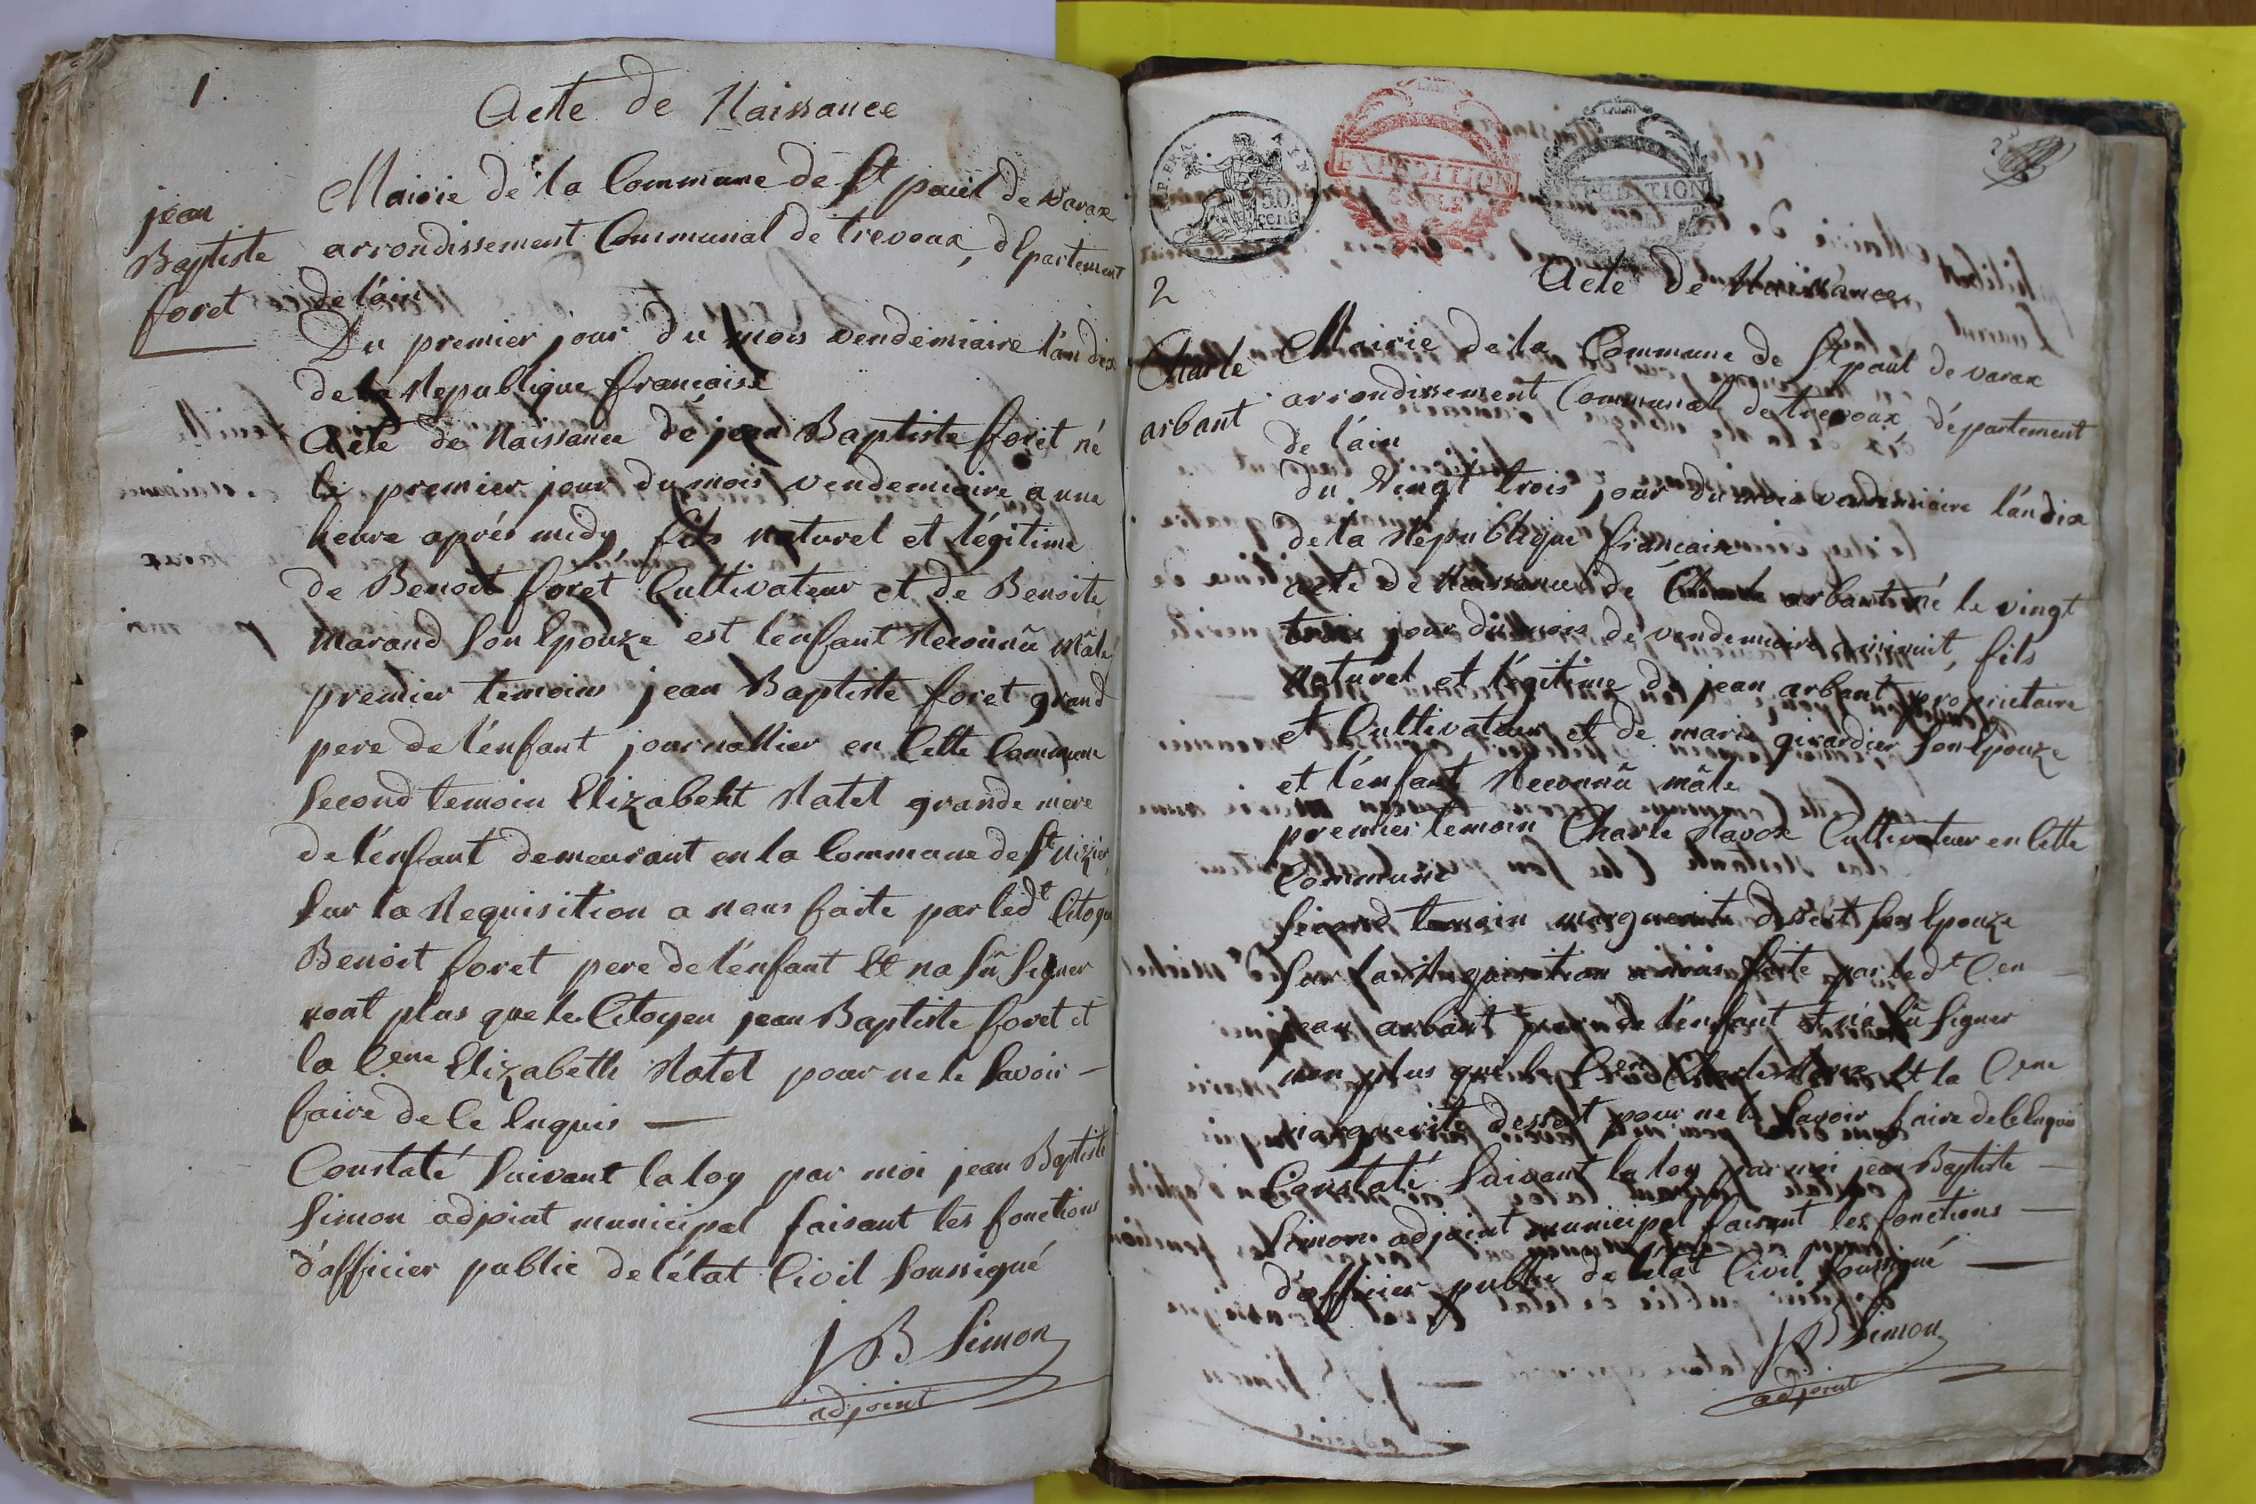 1.
Acte de Naissance
jean
Baptiste
foret
Mairie de la Commune de St paul de varax
arrondissement Communal de trevoux, département
de l'ain
Du premier jour du mois vendemiaire l'an dix
de la Republique francaise
Acte de Naissance de jean Baptiste foret né
le premier jour du mois vendemiaire a une
heure aprés midy fils naturel et légitime
de Benoit foret Cultivateur et de Benoite
marand Son Epouze est l'enfant Reconnû mâle
premier temoins jean Baptiste foret grand
pere de l'enfant journallier en Cette Commune
Second temoin Elizabeht Natel grande mere
de l'enfant demeurant en la Commune de St nizier,
Sur la Requisition a nous faite par led.t Citoyen
Benoit foret pere de l'enfant Et na Sû Signer
nont plus que le Citoyen jean Baptiste foret et
la C.ene Elizabeth Natel pour ne le Savoir –
faire de Ce Enquis —
Constaté Suivant la loy par moi jean Baptiste
Simon adjoint municipal faisant les fonctions
d'officier public de l'état Civil Soussigné
JB Simon
adjoint
REP. FRA.
50
cent.
EXPEDITION
EXPEDITION
2
Acte de Naissance
Charle
arbant
Mairie de la Commune de St paul de varax
arrondissement Communal de trevoux, département
de l'ain
du Vingt trois jour du mois vendemiaire l'an dix
de la Republique francaise
acte de Naissance de Charle arbant né le vingt
trois jour du mois de vendemiaire a minuit, fils
naturel et légitime de jean arbant propriétaire
et Cultivateur et de marie girardier Son Epouze
et l'enfant Reconnû mâle
premier temoin Charle Navox Cultivateur en Cette
Commune
Second temoin marguerite dessert Son Epouze
Sur la Requisition a nous faite par led.t C.en
jean arbant pere de l'enfant et n'a Sû Signer
non plus que le C.en Charle Navox Et la C.ene
marguerite dessert pour ne le Savoir faire de Ce Enquis
Constaté Suivant la loy par moi jean Baptiste —
Simon adjoint municipal faisant les fonctions —
d'officier public de l'état Civil Soussigné —
JB Simon
adjoint